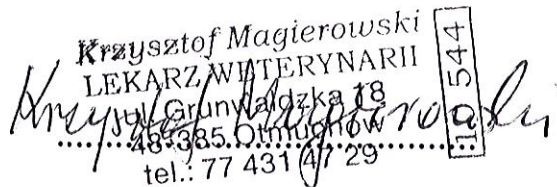 Krzysztof Magierowski
LEKARZ WETERYNARII
ul. Grunwaldzka 18
48-385 Otmuchów
tel.: 77 431 47 29
10 544
Krzysztof Magierowski